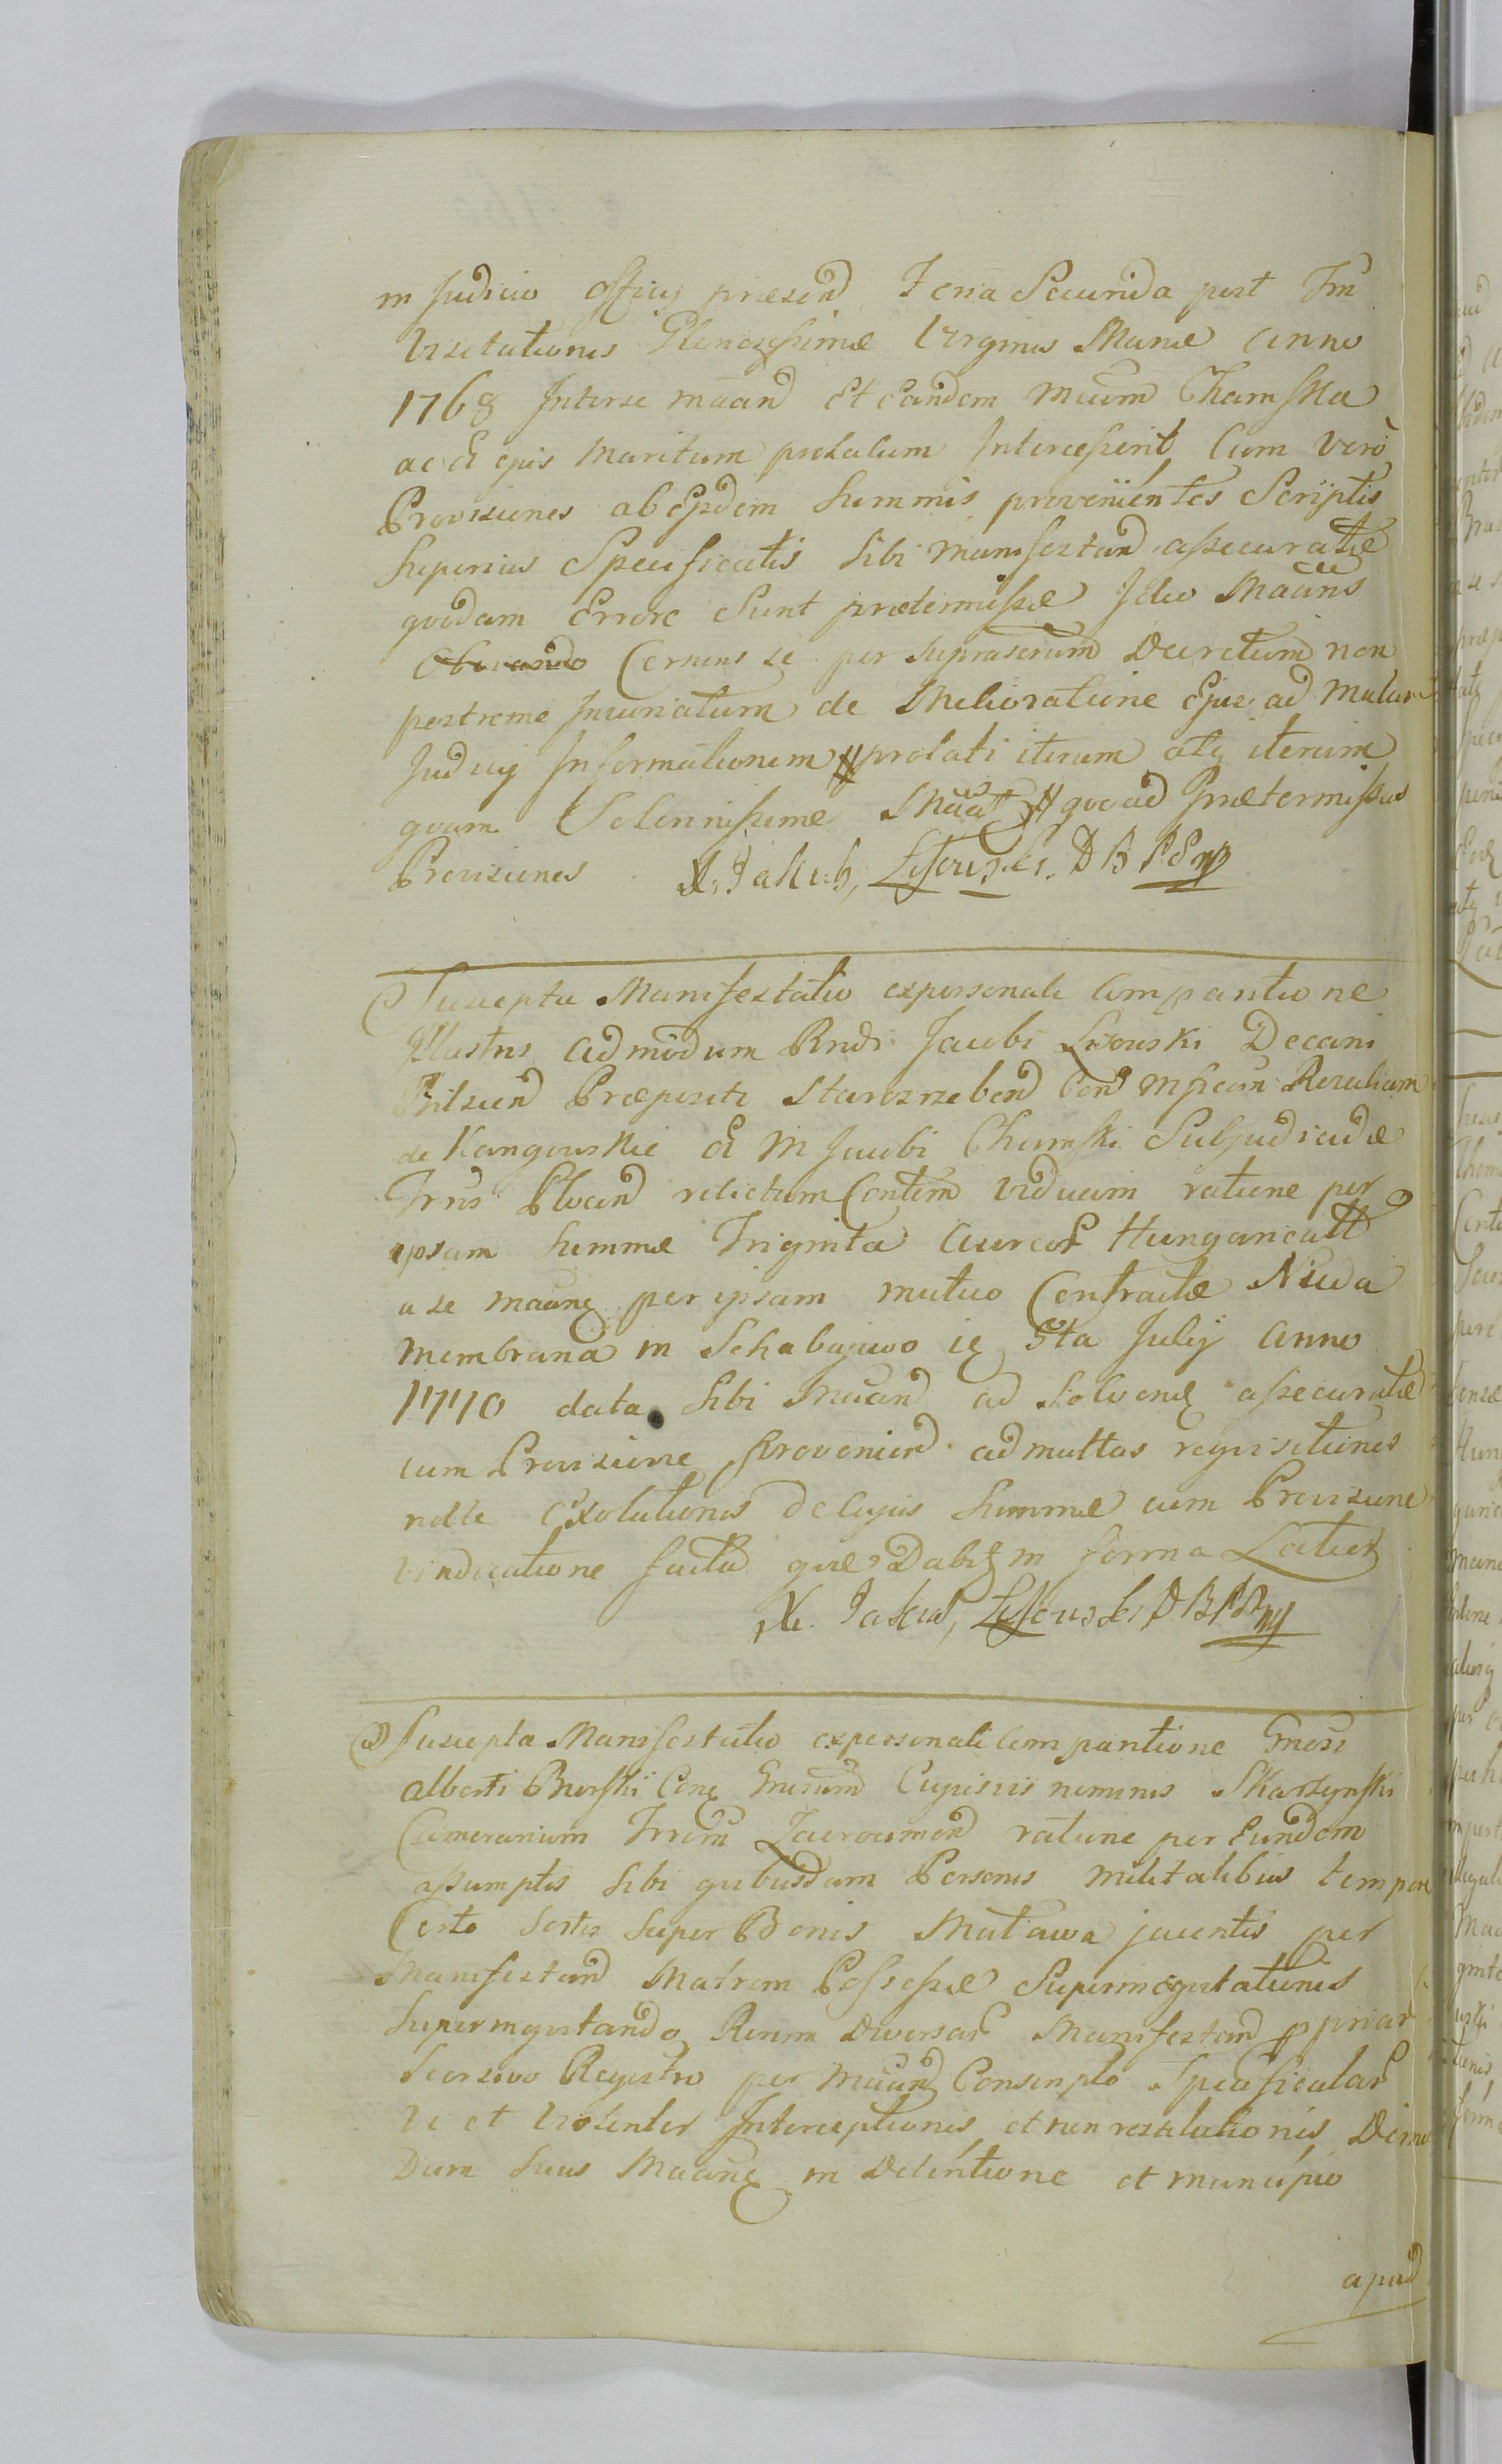 in Judicio officij præsend Feria Secunda post Fm
Visitationis Glenosissimæ Virginis Mariæ Anno
1768 Inter se maand Et Eandem Mcam Chamska
ac Et ejus Maritum prolatum Intercesserit, Cum verò
Provisiones ab Ejsdem Summis provenientes Scriptis
Superius Specificatis Sibi Manifestand assecuratæ
quodam Errore Sunt prætermissæ Ideo Maans
Cernens se per suprascrum Decretum non
postreme Injuriatum de Melioratione Ejus ad
Judicij Informationem prolati iterum atq iterum
quam Solennissime Maat quoad Prætermissas
Provisiones X. Jakub, Lisowski. D B P S mp
Suscepta Manifestatio expersonali Compantione
Illustris Admodum Rndi Jacobi Lisowski Decani
Bilscen Præpositi Starozrebend Con Mficam Rosaliam
de Kangowskie Et M Jacobi Chamski Subjudicidæ
Trris Plocend relictam Contem viduam ratione per
ipsam Summæ Triginta Aureor Hungaricall
a se maane per ipsam mutuo Contractæ Nuda
Membrana in Schabajewo ie 5ta Julij Anno
1770 data Sibi Maand ad Solvend assecuratæ
cum Provisione Provenien ad multas requisitiones
nolle Exolutionis de Cujus Summæ cum Provisione
vindicatione facta quæ Dabit in forma Latiori
X. Jakub, Lisowski D B P S mp
Suscepta Manifestatio expersonali Compantione Gnosi
Alberti Borski Cone Gnosum Cujusvis nominis Skarzynski
Camerarium Trrem Zacrocimend ratione per Eundem
assumptis Sibi quibusdam Personis Militalibus tempore
Certo Sortis Super Bonis Mutawa jacentis per
Manifestand Matrem Possessæ Superinequitationis
Superinequitando Rerum Diversar Manifestand ppriar
Seorsivo Registro per Maand Conscripto Specificatar
Vi et Violenter Interceptionis et non restitutionis
Dum Suus Maane in Detentione et Mancipio
apud